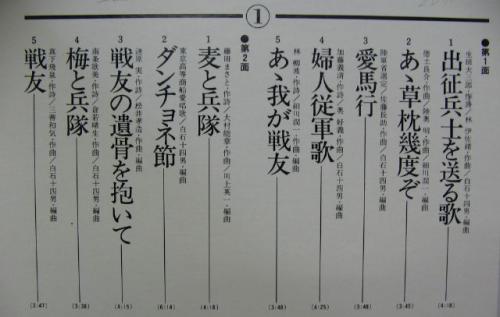 ①
●第1面
1 出征兵士を送る歌 (4:18)
生田大三郎・作詩／林 伊佐緒・作曲／白石十四男・編曲
2 あゝ草枕幾度ぞ (3:45)
徳土良介・作詩／陸奥 明・作曲／細川潤一・編曲
3 愛馬行 (3:48)
陸軍省選定／佐藤長助・作曲／白石十四男・編曲
4 婦人従軍歌 (4:25)
加藤義清・作詩／奥 好義・作曲／白石十四男・編曲
5 あゝ我が戦友 (3:40)
林 柳波・作詩／細川潤一・作曲・編曲
●第2面
1 麦と兵隊 (4:18)
藤田まさと・作詩／大村能章・作曲／川上英一・編曲
2 ダンチョネ節 (6:14)
東京高等商船學愛唱歌／白石十四男・編曲
3 戦友の遺骨を抱いて (4:15)
逵原 実・作詩／松井孝造・作曲・編曲
4 梅と兵隊 (3:38)
南条歌美・作詩／倉若晴生・作曲／白石十四男・編曲
5 戦友 (3:47)
真下飛泉・作詩／三善和気・作曲／白石十四男・編曲